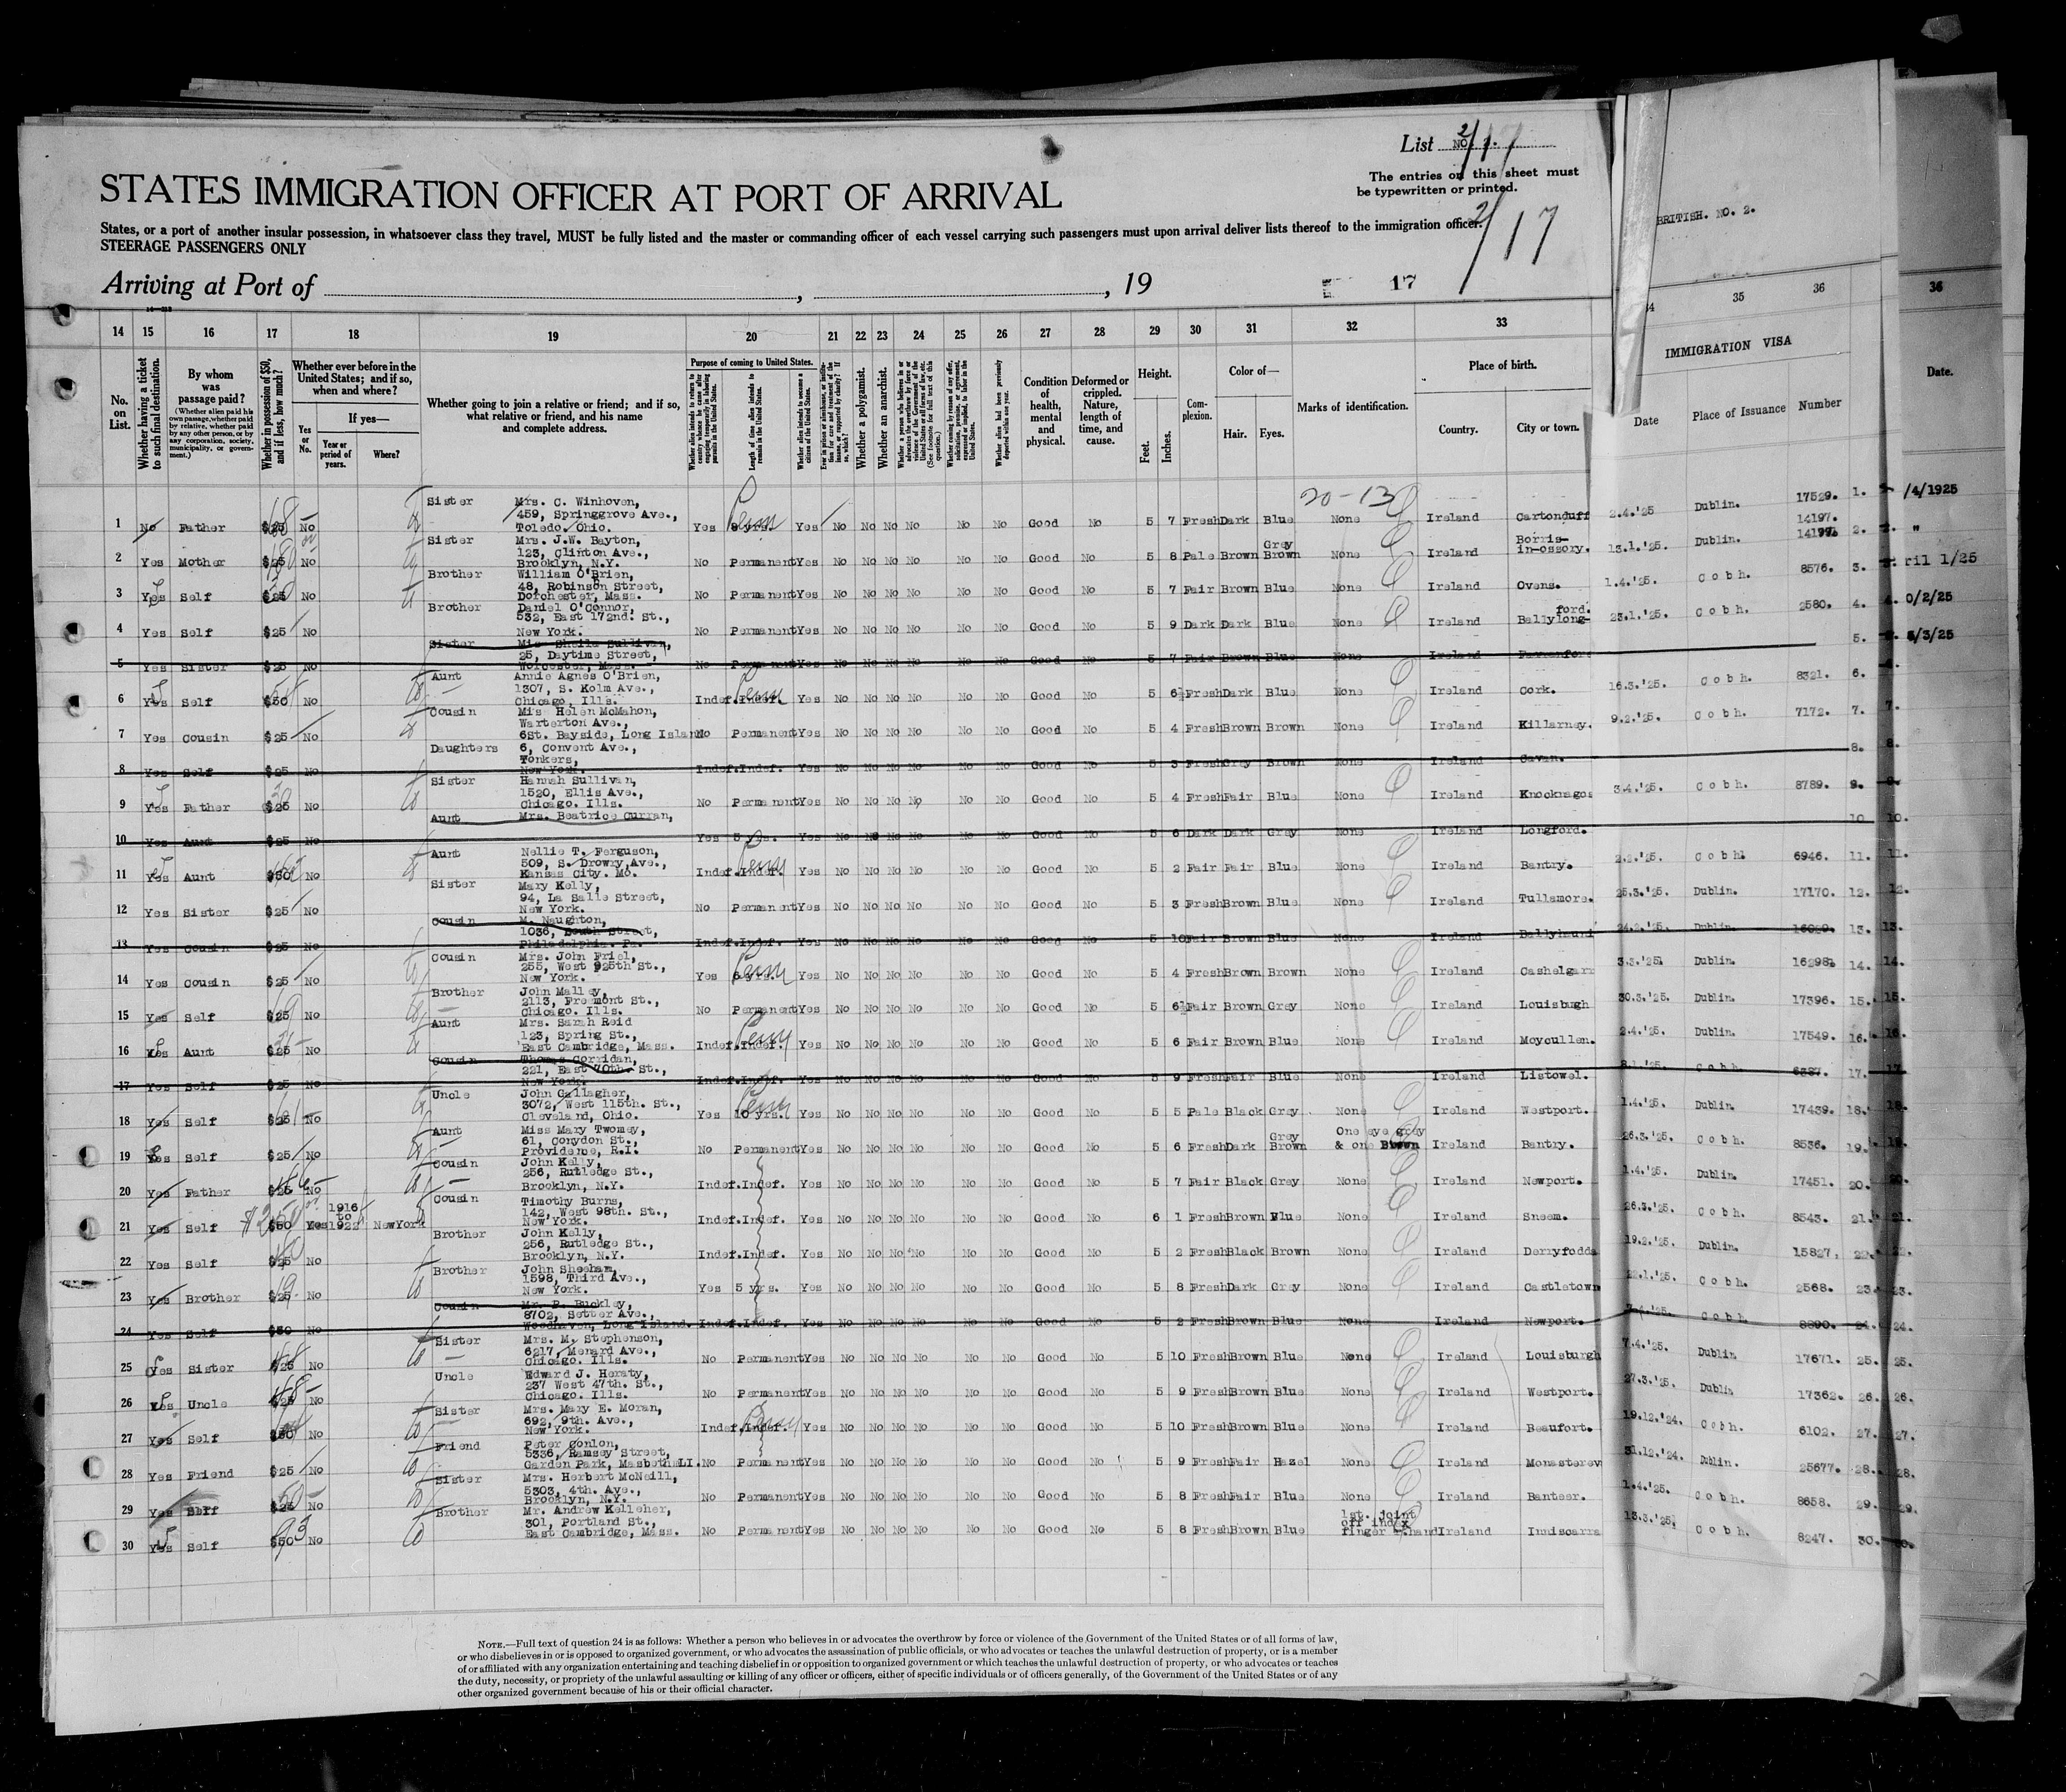 List No. 2.
2/17
The entries on this sheet must
be typewritten or printed.
STATES IMMIGRATION OFFICER AT PORT OF ARRIVAL
2/17
States, or a port of another insular possession, in whatsoever class they travel, MUST be fully listed and the master or commanding officer of each vessel carrying such passengers must upon arrival deliver lists thereof to the immigration officer.
STEERAGE PASSENGERS ONLY
Arriving at Port of , , 19
17
BRITISH. NO. 2.
14 15 16 17 18 19 20 21 22 23 24 25 26 27 28 29 30 31 32 33 34 35 36 36
No. on List.
Whether having a ticket to such final destination.
By whom was passage paid?
(Whether alien paid his own passage, whether paid by relative, whether paid by any other person, or by any corporation, society, municipality, or government.)
Whether in possession of $50, and if less, how much?
Whether ever before in the United States; and if so, when and where?
Yes or No.
If yes—
Year or period of years.
Where?
Whether going to join a relative or friend; and if so, what relative or friend, and his name and complete address.
Purpose of coming to United States.
Length of time alien intends to remain in the United States.
Whether alien intends to become a citizen of the United States.
Whether a polygamist.
Whether an anarchist.
Condition of health, mental and physical.
Deformed or crippled. Nature, length of time, and cause.
Height.
Feet.
Inches.
Complexion.
Color of—
Hair.
Eyes.
Marks of identification.
Place of birth.
Country.
City or town.
IMMIGRATION VISA
Date
Place of Issuance
Number
Date.
20-13
1 No Father $25 No Sister Mrs. C. Winhoven, 459, Springgrove Ave., Toledo. Ohio. Yes 8 yrs. Perm Yes No No No No No No Good No 5 7 Fresh Dark Blue None Ireland Cartonduff 2.4.'25 Dublin. 17529. 1. /4/1925
2 Yes Mother $25 No Sister Mrs. J.W. Bayton, 123, Clinton Ave., Brooklyn, N.Y. No Permanent Yes No No No No No No Good No 5 8 Pale Brown Grey Brown None Ireland Borris-in-ossory. 13.1.'25. Dublin. 14197. 2. "
3 Yes Self $25 No Brother William O'Brien, 48, Robinson Street, Dorchester, Mass. No Permanent Yes No No No No No No Good No 5 7 Fair Brown Blue None Ireland Ovens. 1.4.'25. Cobh. 8576. 3. ril 1/25
4 Yes Self $25 No Brother Daniel O'Connor, 532, East 172nd. St., New York. No Permanent Yes No No No No No No Good No 5 9 Dark Dark Blue None Ireland Ballylong-ford. 23.1.'25. Cobh. 2580. 4. 0/2/25
5 Yes Sister $25 No Sister Mis Sheila Sullivan, 25, Daytime Street, Worcester, Mass. No Permanent Yes No No No No No No Good No 5 7 Fair Brown Blue None Ireland 5. /3/25
6 Yes Self $50 No Aunt Annie Agnes O'Brien, 1307, S. Kolm Ave., Chicago, Ills. Indef. Indef. Perm Yes No No No No No No Good No 5 6½ Fresh Dark Blue None Ireland Cork. 16.3.'25. Cobh. 8321. 6.
7 Yes Cousin $25 No Cousin Mis Helen McMahon, Warterton Ave., 6St. Bayside, Long Island No Permanent Yes No No No No No No Good No 5 4 Fresh Brown Brown None Ireland Killarney. 9.2.'25. Cobh. 7172. 7. 7.
8 Yes Self $25 No Daughters 6, Convent Ave., Yonkers, New York. Indef. Indef. Yes No No No No No No Good No 5 3 Fresh Grey Brown None Ireland Cavan. 8. 8.
9 Yes Father $25 No Sister Hannah Sullivan, 1520, Ellis Ave., Chicago. Ills. No Permanent Yes No No No No No No Good No 5 4 Fresh Fair Blue None Ireland Knocknagos 3.4.'25. Cobh. 8789. 9. 9.
10 Yes Aunt $25 No Aunt Mrs. Beatrice Curran, Yes 5 yrs. Yes No No No No No No Good No 5 6 Dark Dark Grey None Ireland Longford. 10 10.
11 Yes Aunt $50 No Aunt Nellie T. Ferguson, 509, S. Drowry Ave., Kansas City. Mo. Indef. Indef. Perm Yes No No No No No No Good No 5 2 Fair Fair Blue None Ireland Bantry. 2.2.'25. Cobh. 6946. 11. 11.
12 Yes Sister $25 No Sister Mary Kelly, 94, La Salle Street, New York. No Permanent Yes No No No No No No Good No 5 3 Fresh Brown Blue None Ireland Tullamore. 25.3.'25. Dublin. 17170. 12. 12.
13 Yes Cousin $25 No Cousin M. Naughton, 1036, South Street, Philadelphia. Pa. Indef. Indef. Yes No No No No No No Good No 5 10 Fair Brown Blue None Ireland Ballyhauni 24.2.'25. Dublin. 13. 13.
14 Yes Cousin $25 No Cousin Mrs. John Friel, 255, West 925th St., New York. Yes 6 yrs. Perm Yes No No No No No No Good No 5 4 Fresh Brown Brown None Ireland Cashelgarr 3.3.'25. Dublin. 16298. 14. 14.
15 Yes Self $25 No Brother John Malley, 2113, Freemont St., Chicago. Ills. No Permanent Yes No No No No No No Good No 5 6½ Fair Brown Grey None Ireland Louisburgh 30.3.'25. Dublin. 17396. 15. 15.
16 Yes Aunt $25 No Aunt Mrs. Sarah Reid 123, Spring St., East Cambridge, Mass. Indef. Indef. Perm Yes No No No No No No Good No 5 6 Fair Brown Blue None Ireland Moycullen. 2.4.'25. Dublin. 17549. 16. 16.
17 Yes Self $25 No Cousin Thomas Corridan, 221, East 70th. St., New York. Indef. Indef. Yes No No No No No No Good No 5 9 Fresh Fair Blue None Ireland Listowel. 8.1.'25. Cobh. 17. 17
18 Yes Self $25 No Uncle John Gallagher, 3072, West 115th. St., Cleveland, Ohio. Yes 10 yrs. Perm Yes No No No No No No Good No 5 5 Pale Black Grey None Ireland Westport. 1.4.'25. Dublin. 17439. 18. 18.
19 Yes Self $25 No Aunt Miss Mary Twomey, 61, Conydon St., Providence, R.I. No Permanent Yes No No No No No No Good No 5 6 Fresh Dark Grey Brown One eye grey & one Brown Ireland Bantry. 26.3.'25. Cobh. 8536. 19. 19.
20 Yes Father $25 No Cousin John Kelly, 256, Rutledge St., Brooklyn, N.Y. Indef. Indef. Yes No No No No No No Good No 5 7 Fair Black Grey None Ireland Newport. 1.4.'25. Dublin. 17451. 20. 20.
21 Yes Self $50 Yes 1916 to 1922 New York Cousin Timothy Burns, 142, West 98th. St., New York. Indef. Indef. Yes No No No No No No Good No 6 1 Fresh Brown Blue None Ireland Sneem. 26.3.'25. Cobh. 8543. 21. 21.
22 Yes Self $25 No Brother John Kelly, 256, Rutledge St., Brooklyn, N.Y. Indef. Indef. Yes No No No No No No Good No 5 2 Fresh Black Brown None Ireland Derryfodda 19.2.'25. Dublin. 15827. 22. 22.
23 Yes Brother $25 No Brother John Sheehan, 1598, Third Ave., New York. Yes 5 yrs. Yes No No No No No No Good No 5 8 Fresh Dark Grey None Ireland Castletown 22.1.'25. Cobh. 2568. 23. 23.
24 Yes Self $50 No Cousin Mr. P. Buckley, 8702, Setter Ave., Woodhaven, Long Island. Indef. Indef. Yes No No No No No No Good No 5 2 Fresh Brown Blue None Ireland Newport. 7.4.'25. Cobh. 8890. 24. 24.
25 Yes Sister $25 No Sister Mrs. M. Stephenson, 6217, Menard Ave., Chicago. Ills. No Permanent Yes No No No No No No Good No 5 10 Fresh Brown Blue None Ireland Louisburgh 7.4.'25. Dublin 17671. 25. 25.
26 Yes Uncle $25 No Uncle Edward J. Heraty, 237 West 47th. St., Chicago. Ills. No Permanent Yes No No No No No No Good No 5 9 Fresh Brown Blue None Ireland Westport. 27.3.'25. Dublin 17362. 26. 26.
27 Yes Self $50 No Sister Mrs. Mary E. Moran, 692, 9th. Ave., New York. Indef. Indef. Perm Yes No No No No No No Good No 5 10 Fresh Brown Blue None Ireland Beaufort. 19.12.'24. Cobh. 6102. 27. 27.
28 Yes Friend $25 No Friend Peter Conlon, 5336, Ramsey Street, Garden Park, Masbeth LI. No Permanent Yes No No No No No No Good No 5 9 Fresh Fair Hazel None Ireland Monasterev 31.12.'24. Dublin. 25677. 28. 28.
29 Yes Self $25 No Sister Mrs. Herbert McNeill, 5303, 4th. Ave., Brooklyn, N.Y. No Permanent Yes No No No No No No Good No 5 8 Fresh Fair Blue None Ireland Banteer. 1.4.'25. Cobh. 8658. 29. 29.
30 Yes Self $50 No Brother Mr. Andrew Kelleher, 301, Portland St., East Cambridge, Mass. No Permanent Yes No No No No No No Good No 5 8 Fresh Brown Blue 1st. joint off index finger hand Ireland Inniscarra 13.3.'25. Cobh. 8247. 30. 30.
NOTE.—Full text of question 24 is as follows: Whether a person who believes in or advocates the overthrow by force or violence of the Government of the United States or of all forms of law,
or who disbelieves in or is opposed to organized government, or who advocates the assassination of public officials, or who advocates or teaches the unlawful destruction of property, or is a member
of or affiliated with any organization entertaining and teaching disbelief in or opposition to organized government or which teaches the unlawful destruction of property, or who advocates or teaches
the duty, necessity, or propriety of the unlawful assaulting or killing of any officer or officers, either of specific individuals or of officers generally, of the Government of the United States or of any
other organized government because of his or their official character.